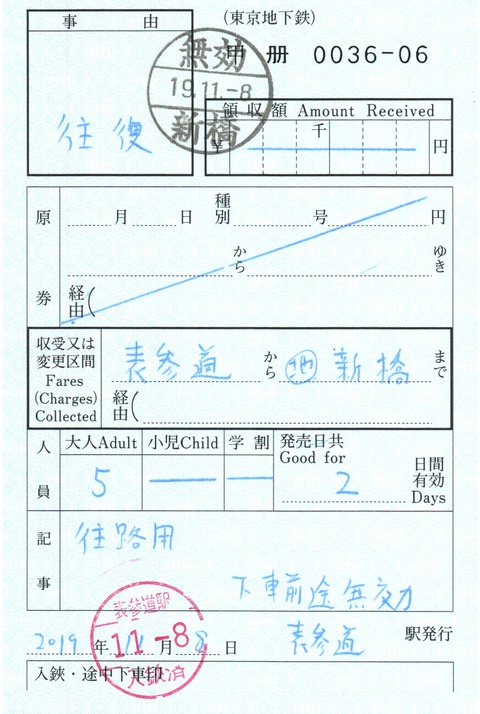 (東京地下鉄)
事 由
甲 册 0036-06
無効
19.11.-8
新橋
往復
領収額 Amount Received
千
¥ 円
原券
月 日 種別 号 円
から ゆき
経由(
収受又は
変更区間
Fares
(Charges)
Collected
表参道 から 地 新橋 まで
経由(
人員
大人Adult 小児Child 学割 発売日共
Good for
5 2 日間
有効
Days
記事
往路用
下車前途無効
表参道駅
11.-8
入鋏済
2019 年 11 月 8 日 表参道 駅発行
入鋏・途中下車印